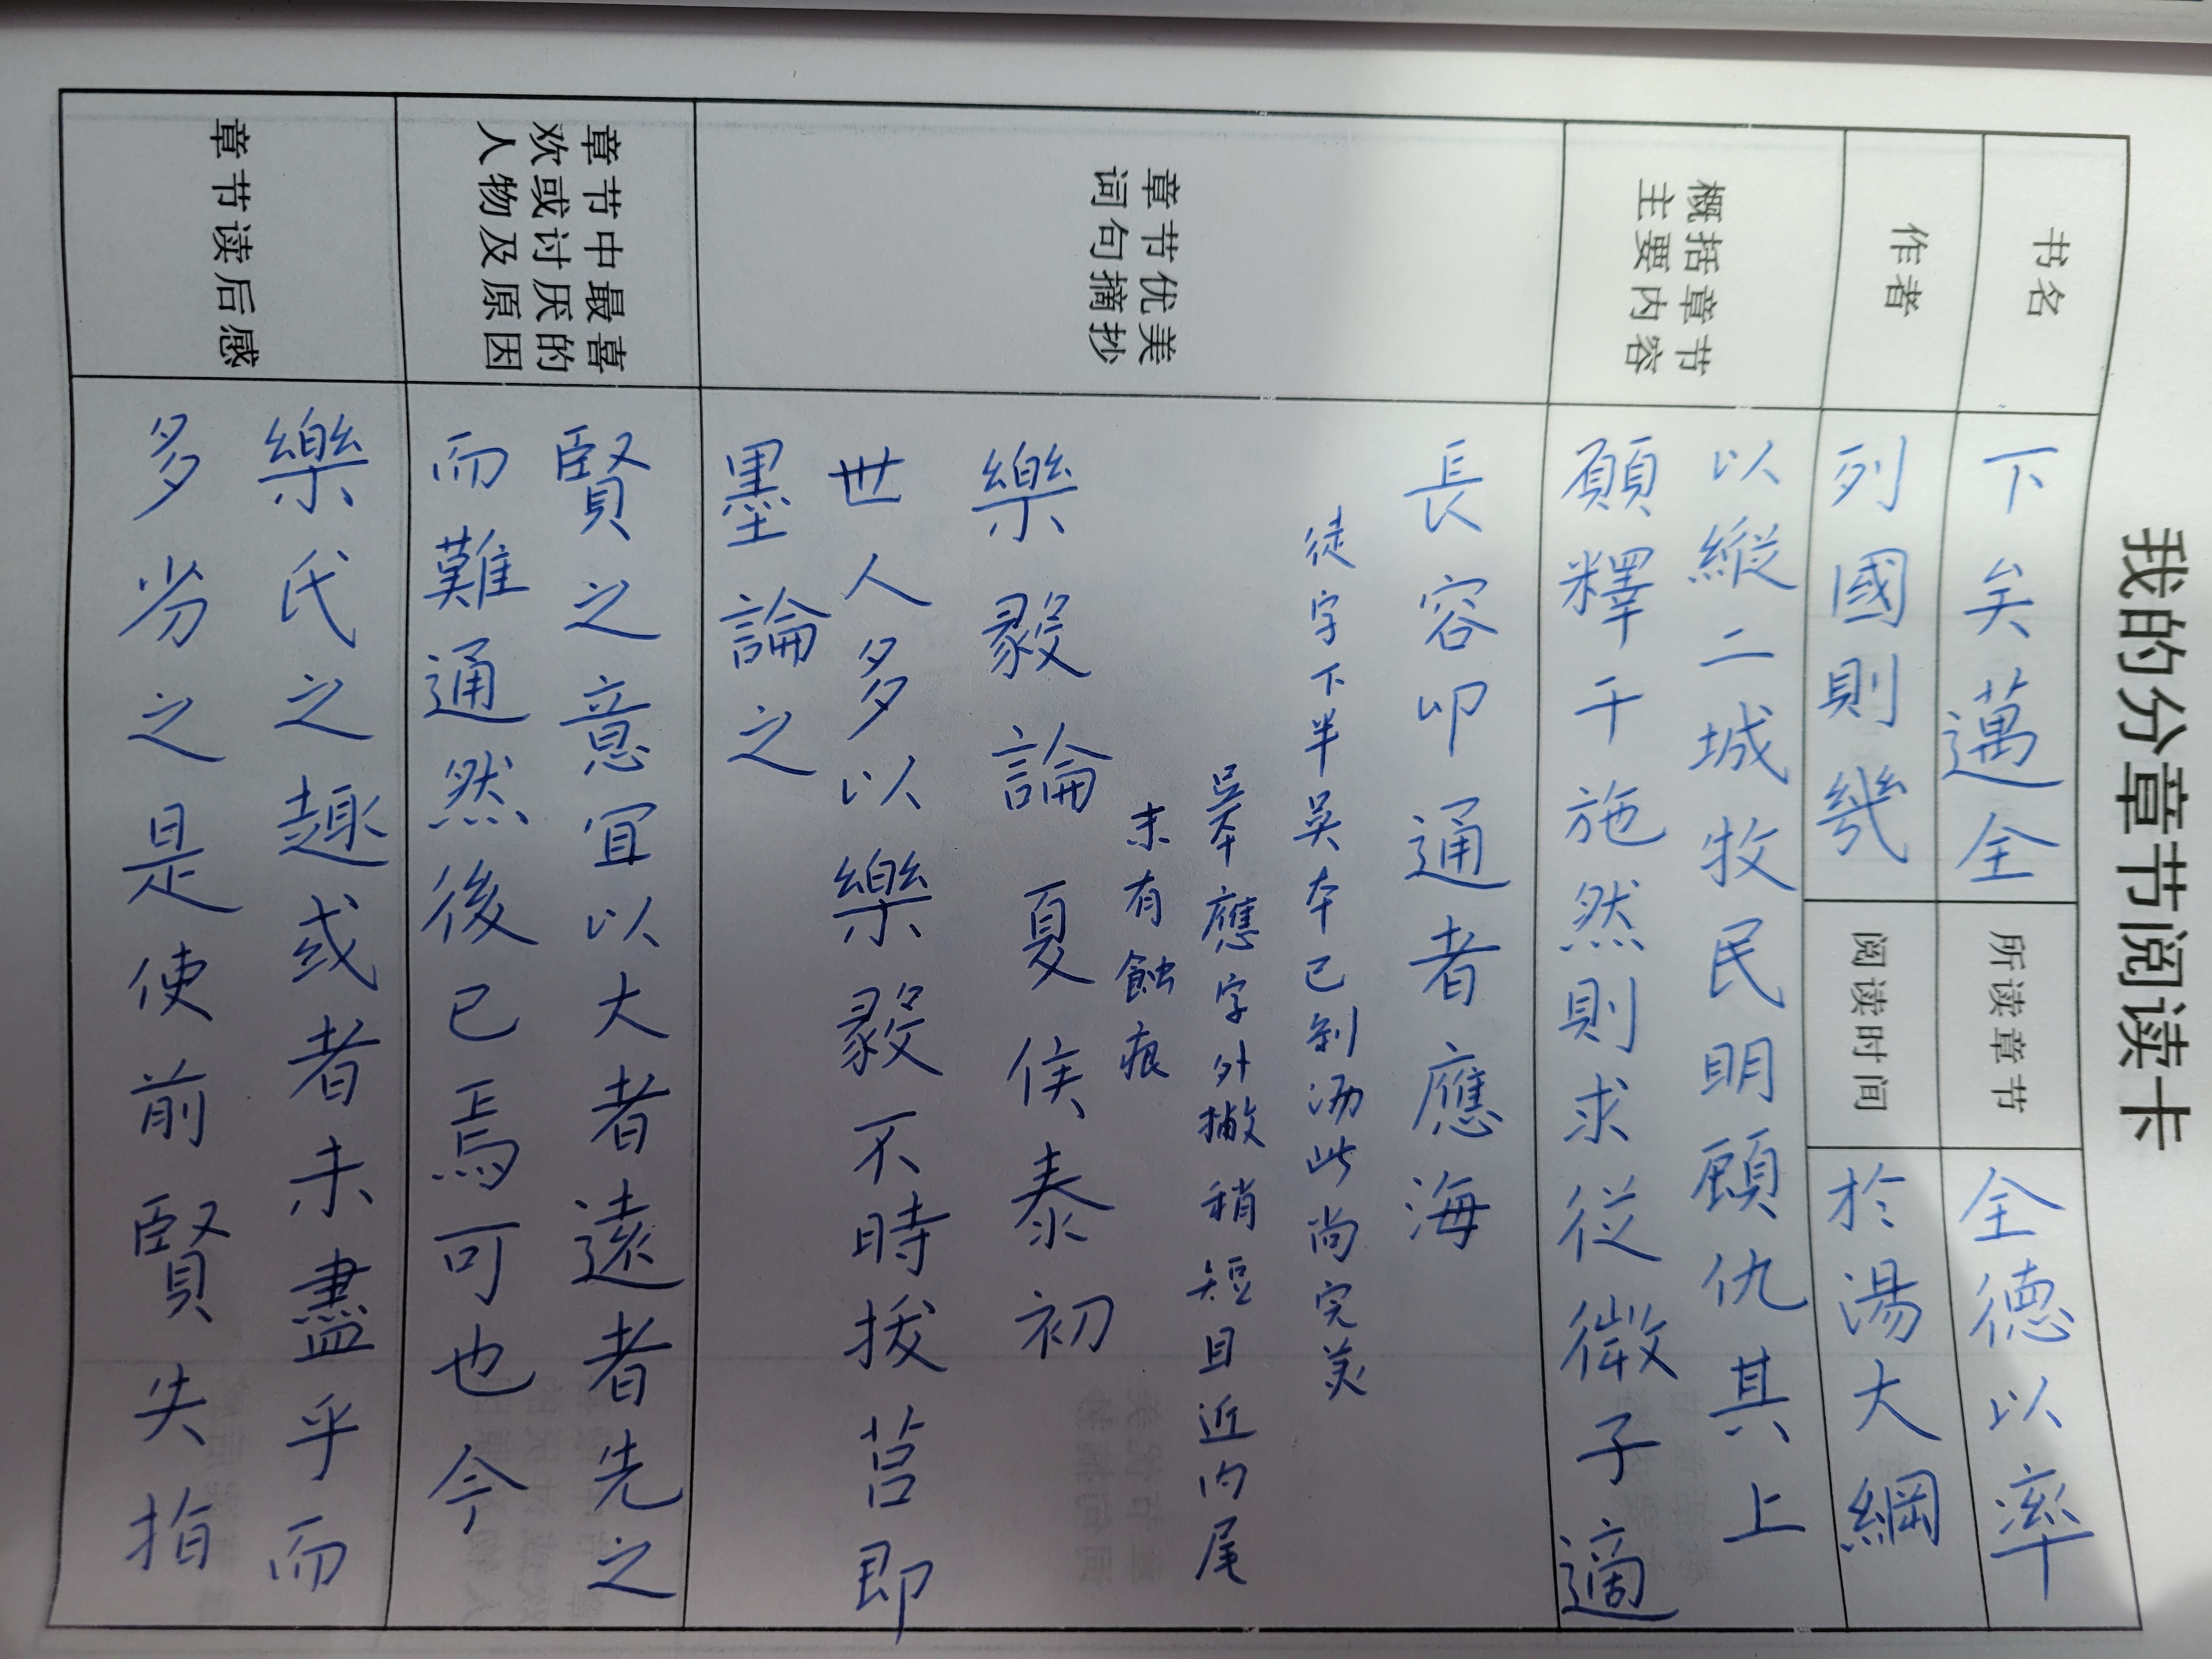 我的分章节阅读卡
书名
下矣邁全
所读章节
全德以率
作者
列國則幾
阅读时间
於湯大綱
概括章节
主要内容
以縱二城牧民明顧仇其上
願釋干施然則求従微子適
章节优美
词句摘抄
長容叩通者應海
徒字下半吴本已剝泐此尚完美
吴本應字外撇稍短且近内尾
未有蝕痕
樂毅論 夏侯泰初
世人多以樂毅不時拔莒即
墨論之
章节中最喜
欢或讨厌的
人物及原因
賢之意宜以大者遠者先之
而難通然後已焉可也今
章节读后感
樂氏之趣或者未盡乎而
多劣之是使前賢失指